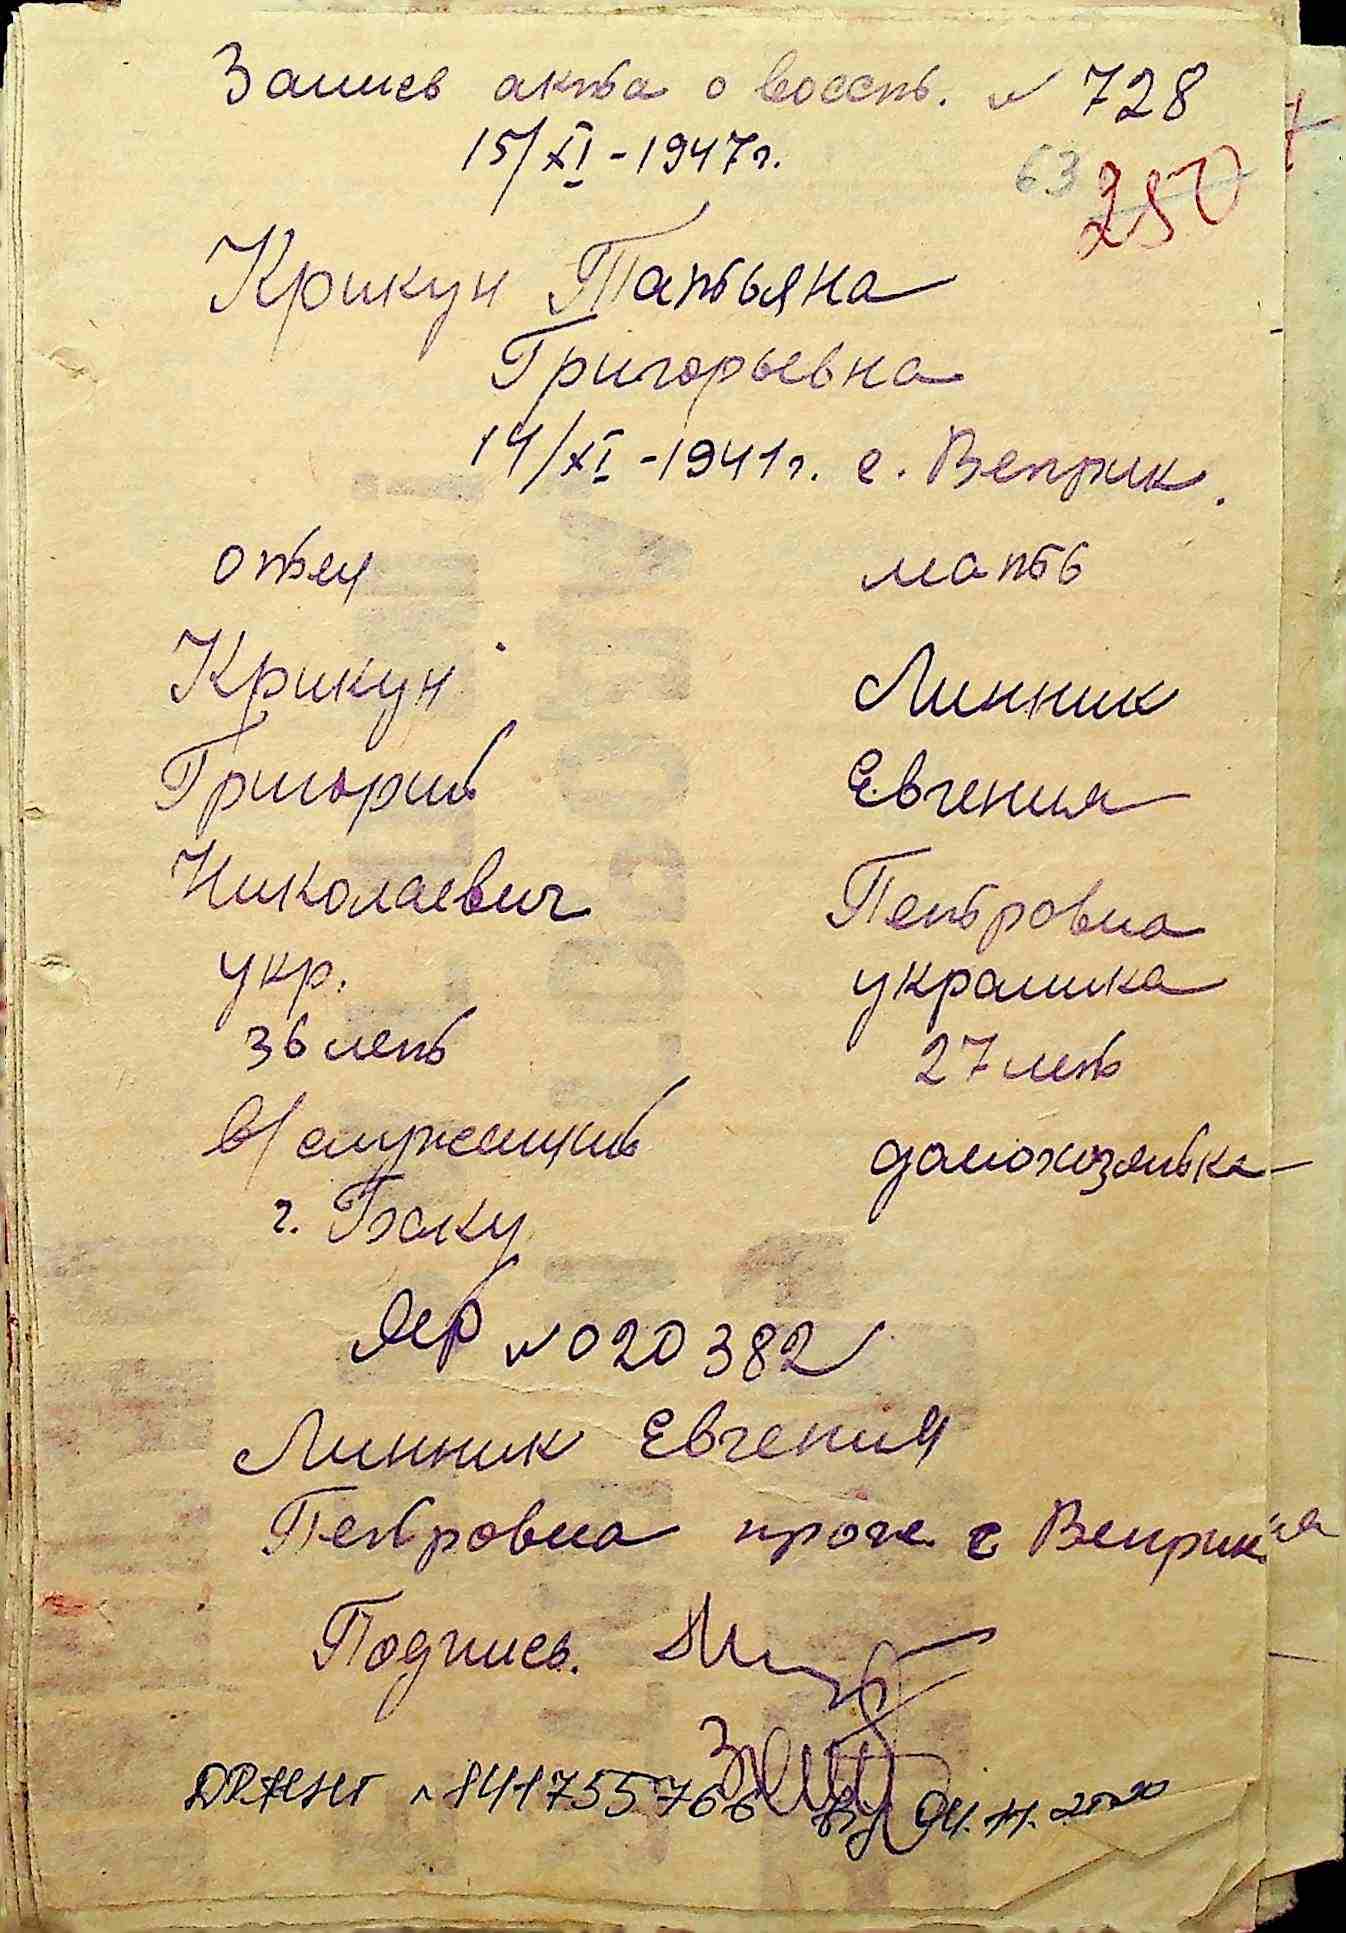 Запись акта о восст. № 728
15/XI-1947г.
63 250
Крикун Татьяна
Григорьевна
14/XI-1941г. с. Веприк.
отец мать
Крикун Линник
Григорий Евгения
Николаевич Петровна
укр. украинка
36 лет 27 лет
в/служащий домохозяйка
г. Баку
ЯБР № 020382
Линник Евгения
Петровна прож. с Веприк
Подпись.
ДРАЦНГ № 8417557 66 від 04.11.2020